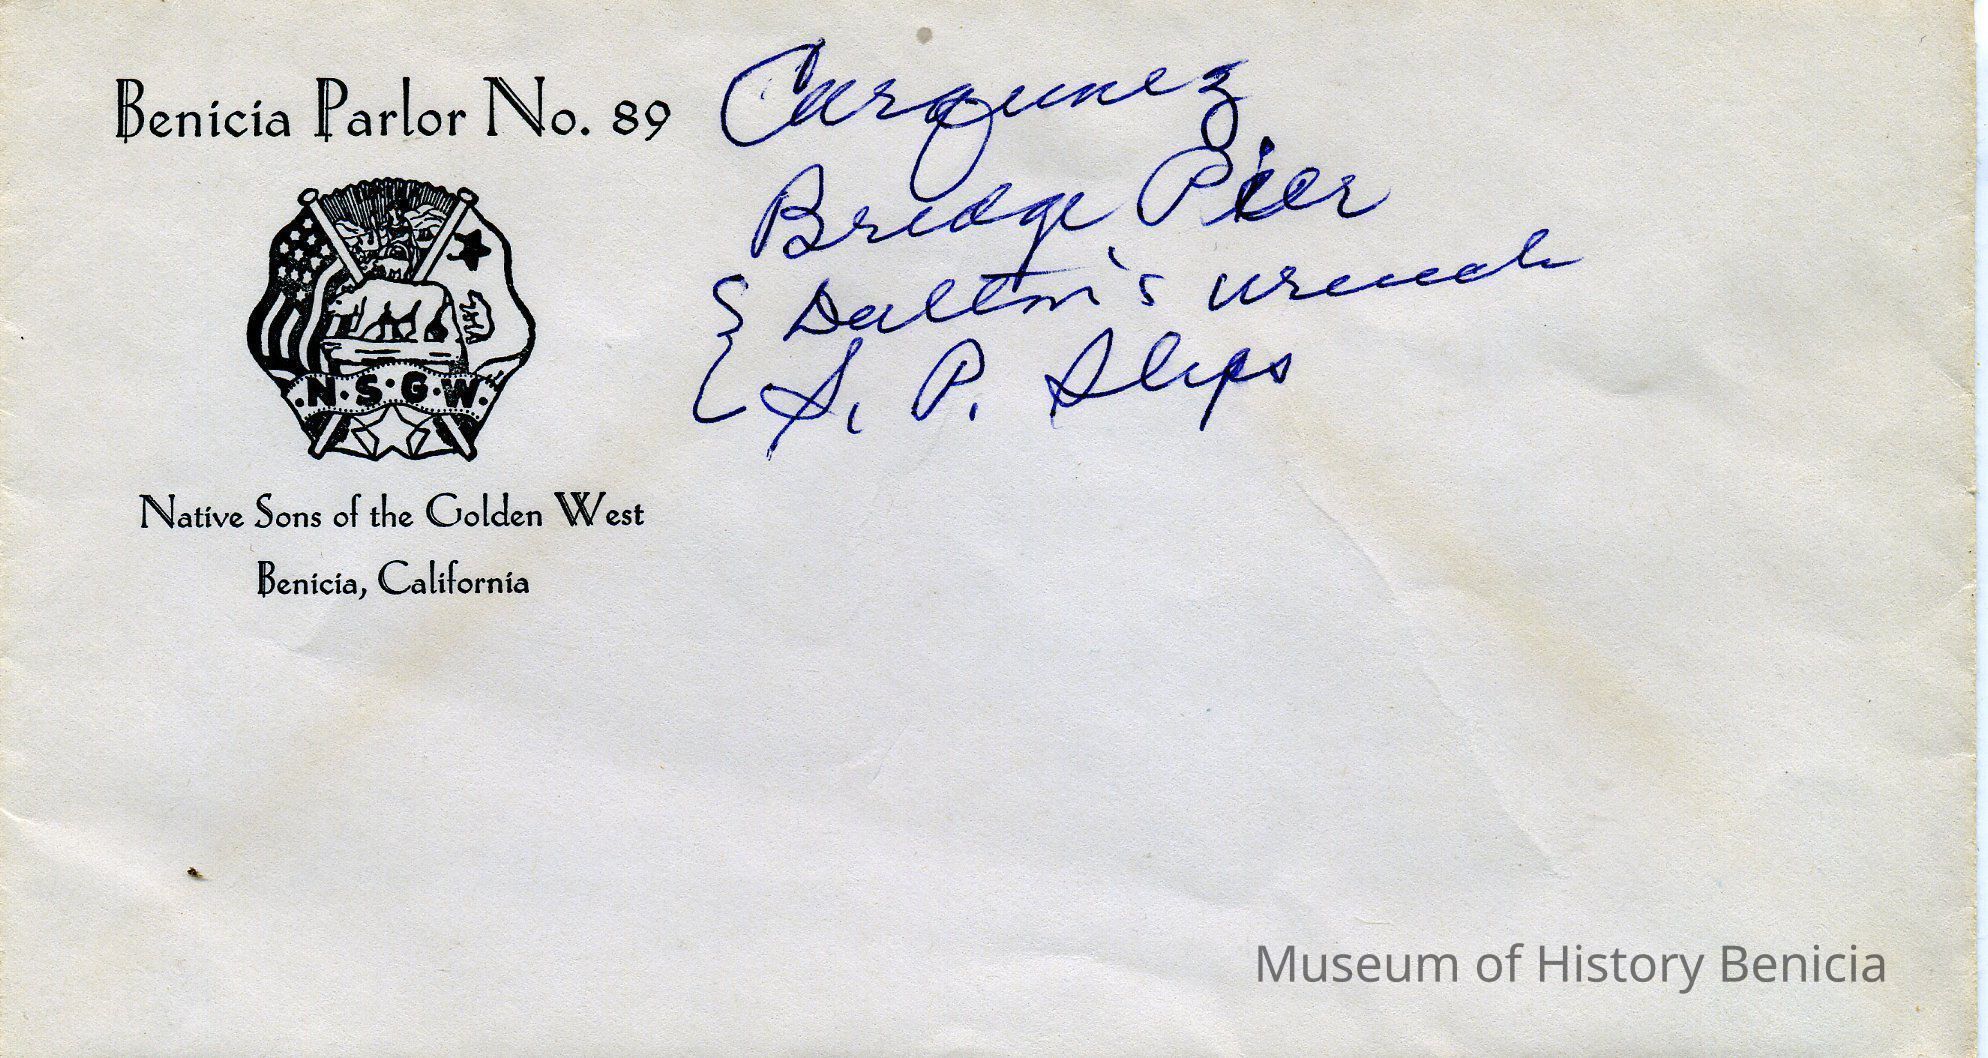 Benicia Parlor No. 89
N.S.G.W.
Native Sons of the Golden West
Benicia, California
Carquinez
Bridge Pier
& Dalton's wrench
S. P. Slips
Museum of History Benicia